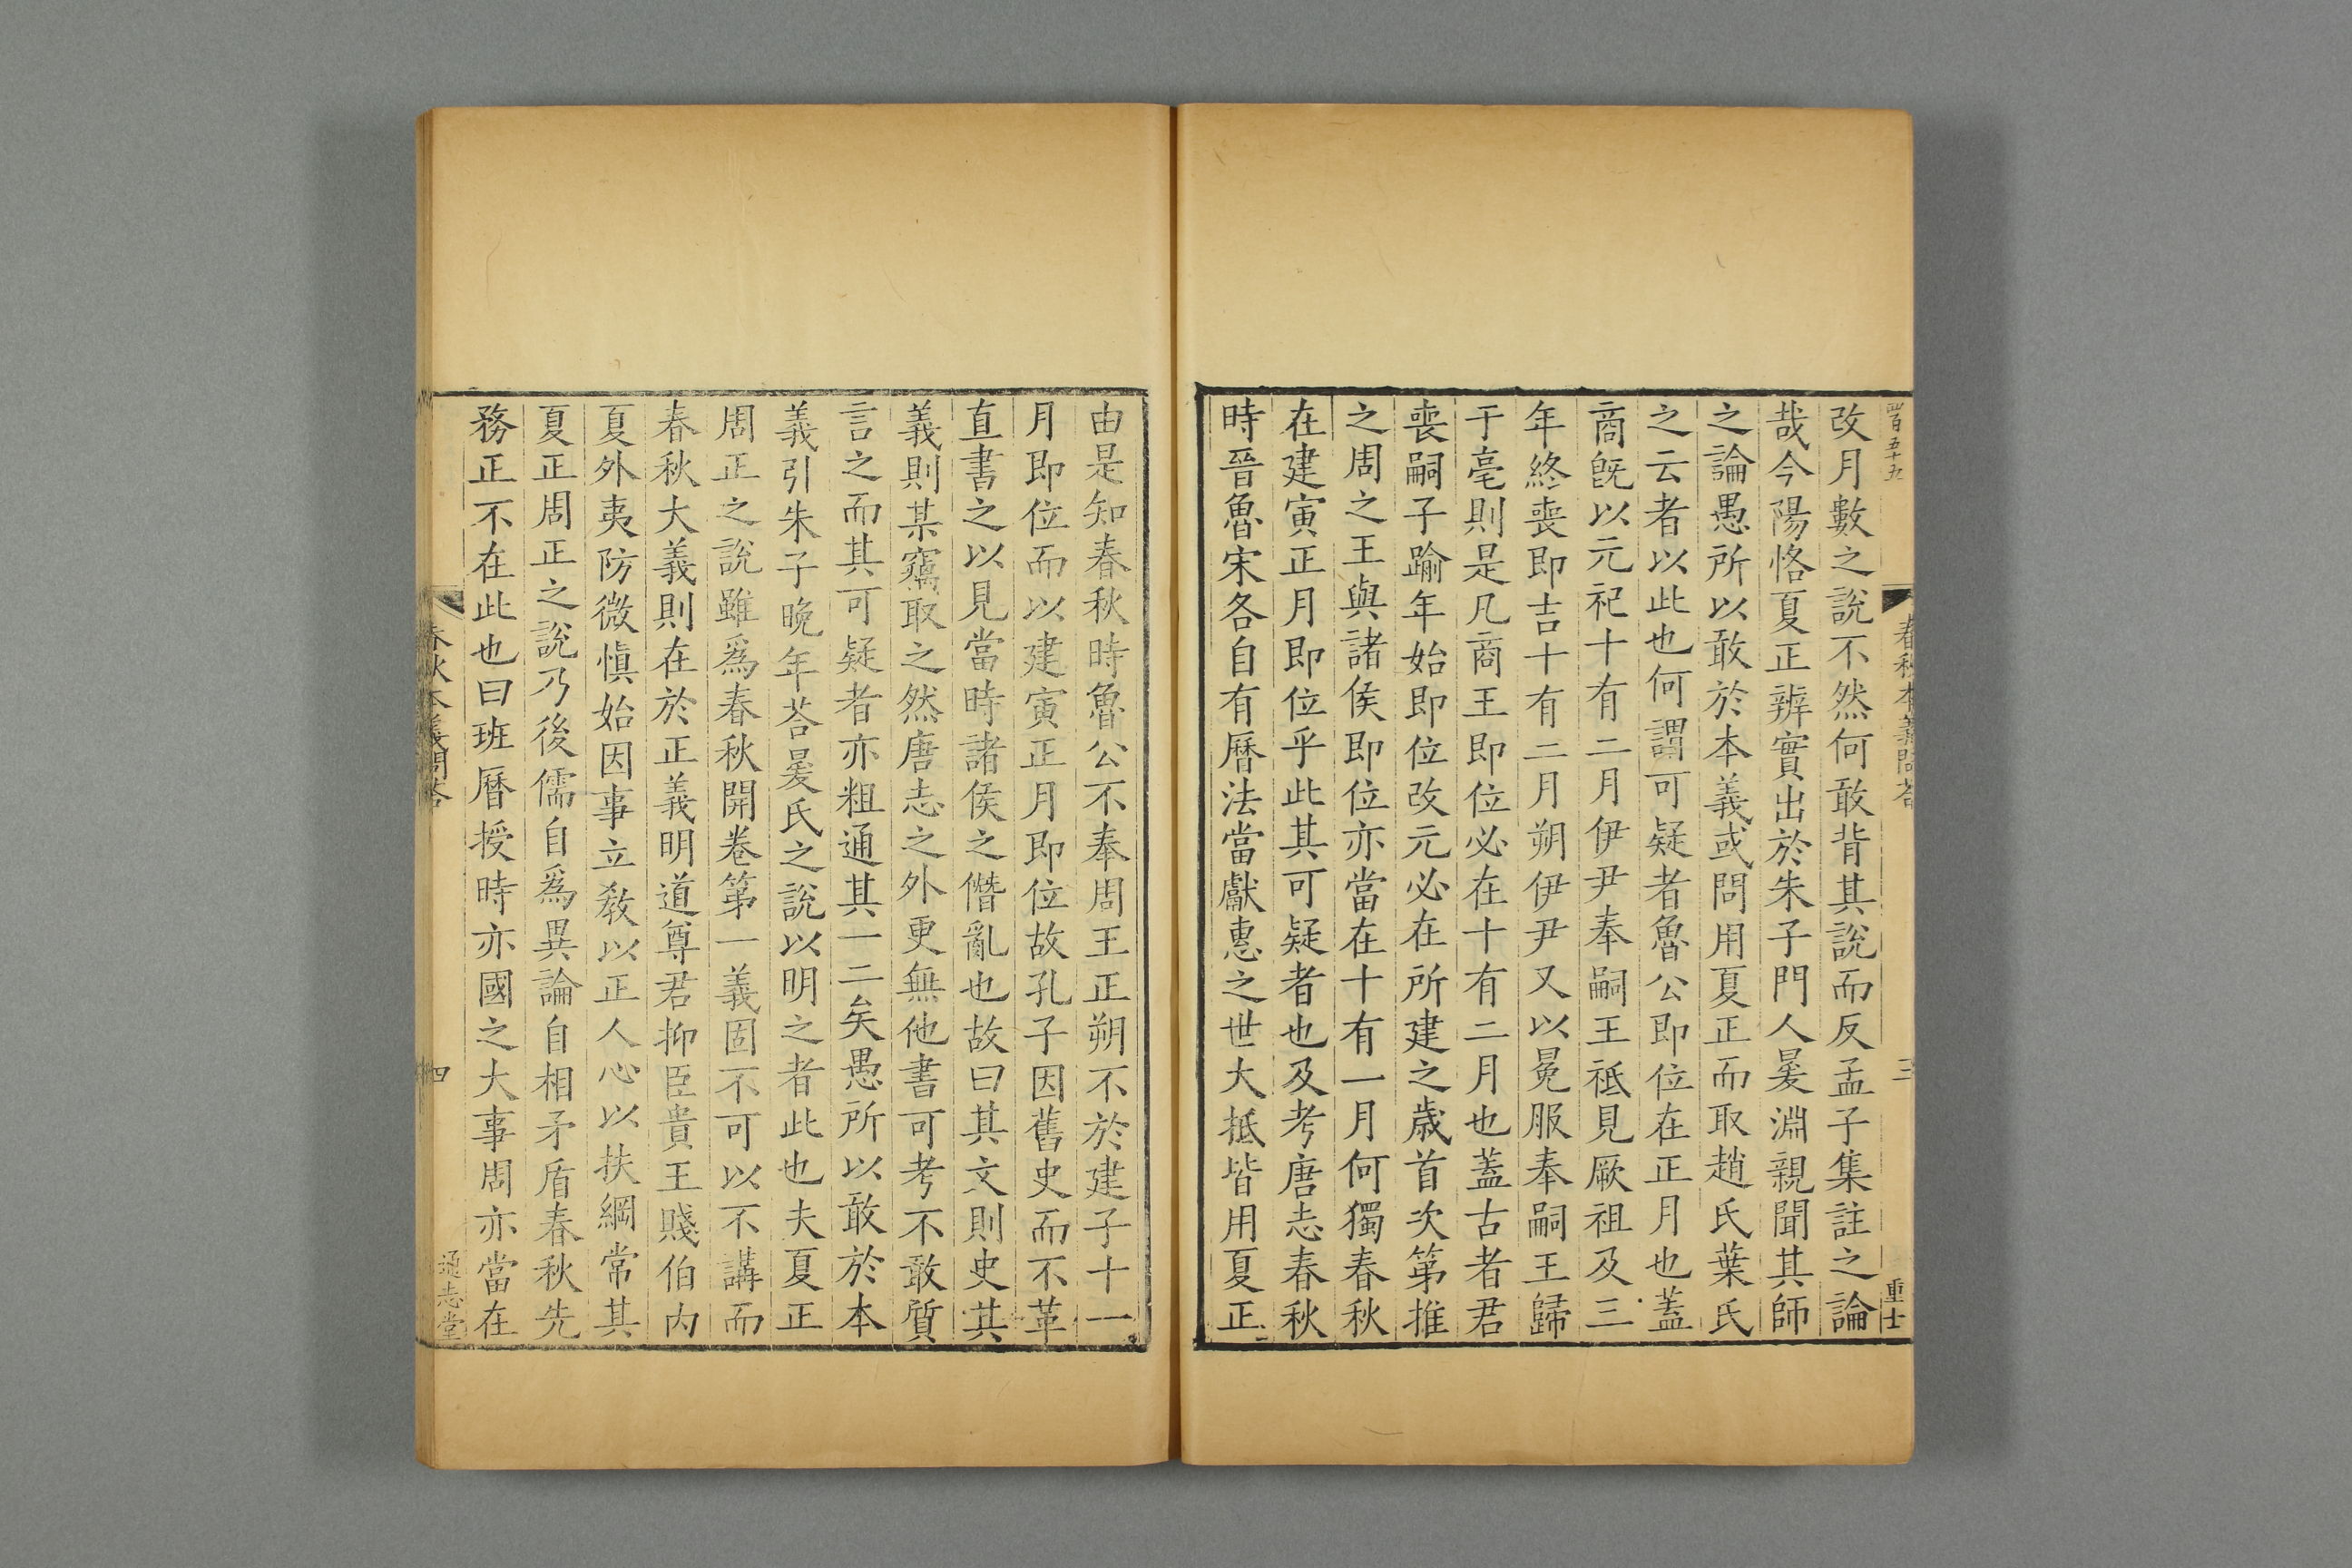 四百五十五
春秋本義問荅
三
重士
改月數之說不然何敢背其說而反孟子集註之論
哉今陽恪夏正辨實出於朱子門人㬊淵親聞其師
之論愚所以敢於本義或問用夏正而取趙氏葉氏
之云者以此也何謂可疑者魯公即位在正月也蓋
商旣以元祀十有二月伊尹奉嗣王祗見厥祖及三
年終喪即吉十有二月朔伊尹又以冕服奉嗣王歸
于亳則是凡商王即位必在十有二月也蓋古者君
喪嗣子踰年始即位改元必在所建之歲首次第推
之周之王與諸侯即位亦當在十有一月何獨春秋
在建寅正月即位乎此其可疑者也及考唐志春秋
時晉魯宋各自有曆法當獻惠之世大抵皆用夏正
由是知春秋時魯公不奉周王正朔不於建子十一
月即位而以建寅正月即位故孔子因舊史而不革
直書之以見當時諸侯之僭亂也故曰其文則史其
義則某竊取之然唐志之外更無他書可考不敢質
言之而其可疑者亦粗通其一二矣愚所以敢於本
義引朱子晚年荅㬊氏之說以明之者此也夫夏正
周正之說雖爲春秋開卷第一義固不可以不講而
春秋大義則在於正義明道尊君抑臣貴王賤伯內
夏外夷防微愼始因事立敎以正人心以扶綱常其
夏正周正之說乃後儒自爲異論自相矛盾春秋先
務正不在此也曰班曆授時亦國之大事周亦當在
春秋本義問荅
四
通志堂